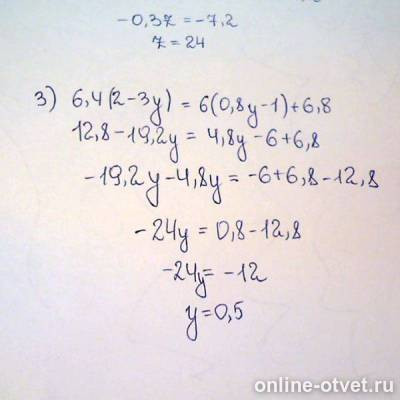 -0,3z = -7,2
z = 24
3) 6,4(2-3y) = 6(0,8y-1)+6,8
12,8-19,2y = 4,8y-6+6,8
-19,2y-4,8y = -6+6,8-12,8
-24y = 0,8-12,8
-24y = -12
y = 0,5
online-otvet.ru